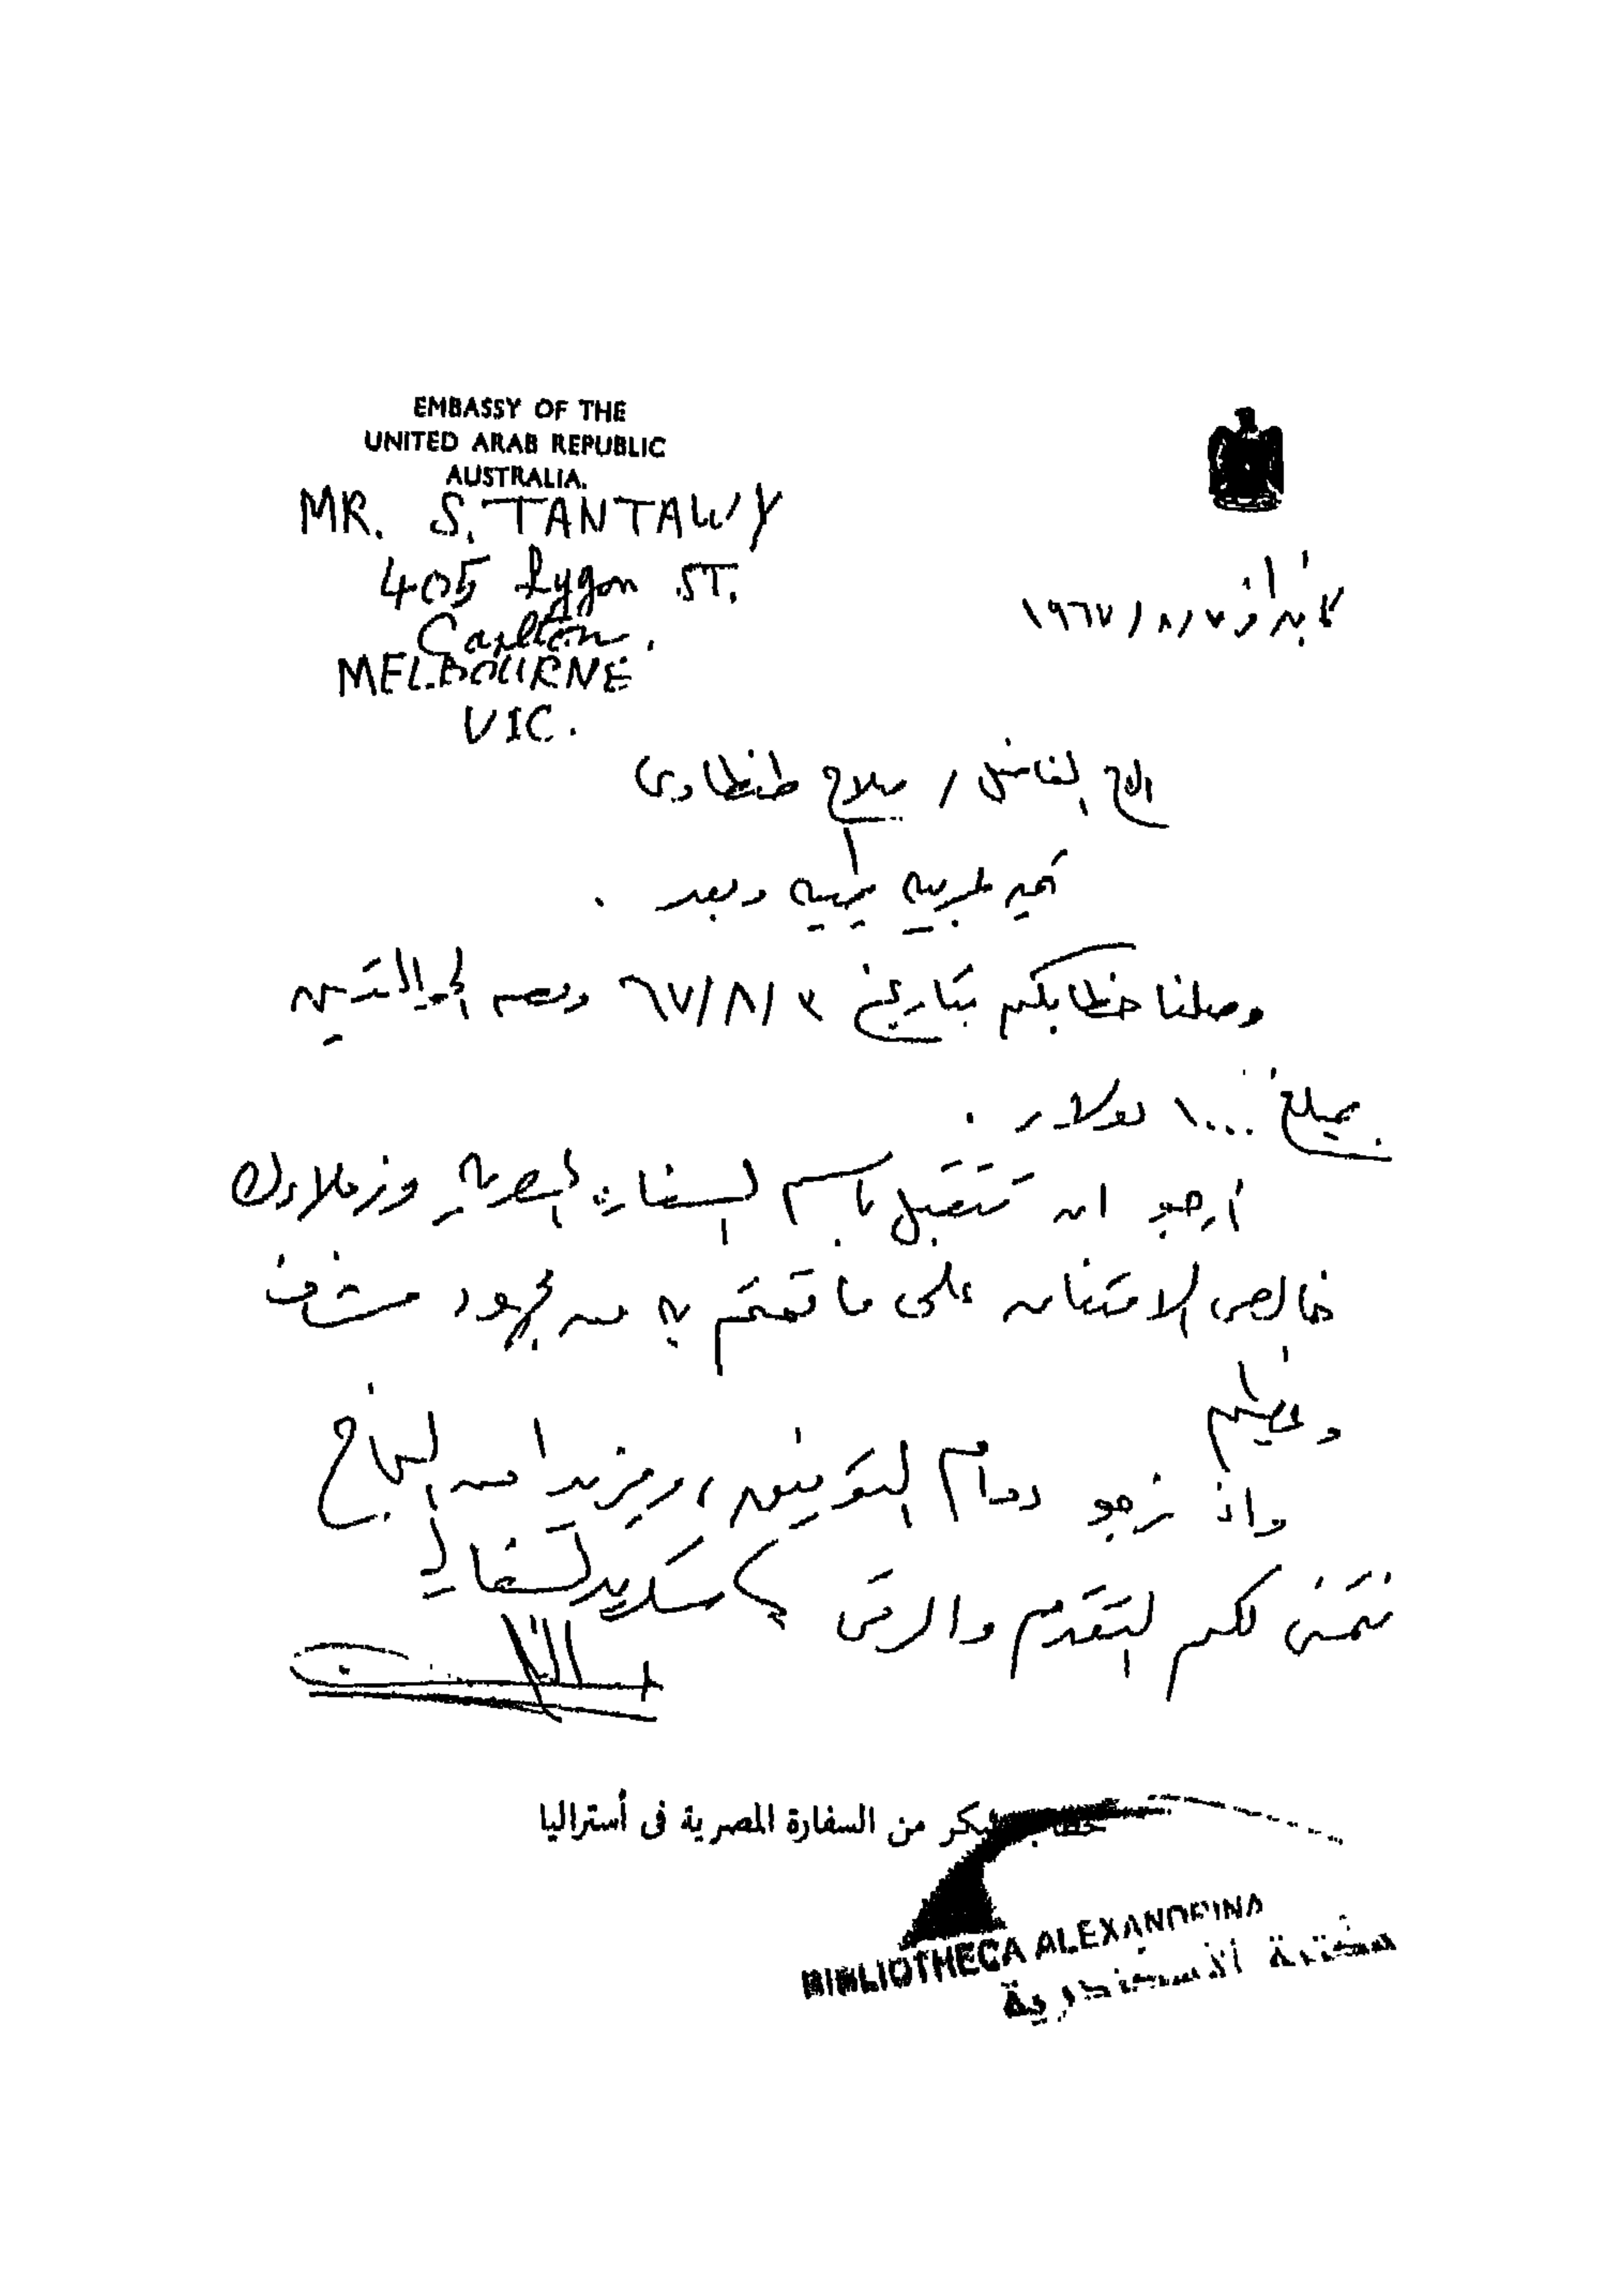 EMBASSY OF THE
UNITED ARAB REPUBLIC
AUSTRALIA.
MR. S. TANTAWY
405 Lygon ST.
Carlton.
MELBOURNE
VIC.
كانبرا في ١٩٦٧/٨/٧
الاخ الفاضل / صلاح طنطاوى
تحية عربية طيبة وبعد .
وصلنا خطابكم بتاريخ ٦٧/٨/٣ وبه الحوالتين
بمبلغ ١٠٠٠ دولار .
أرجو ان تتقبل باسم السفارة المصرية وزملاءك
خالص الامتنان على ما قمتم به من مجهود مشرف
وعظيم
واذ نرجو دوام التوفيق، ومزيدا من النجاح
نتمنى لكم التقدم والرقى
سكرتير السفارة
خطاب مبكر من السفارة المصرية فى أستراليا
BIBLIOTHECA ALEXANDRINA
مكتبة الأسكندرية